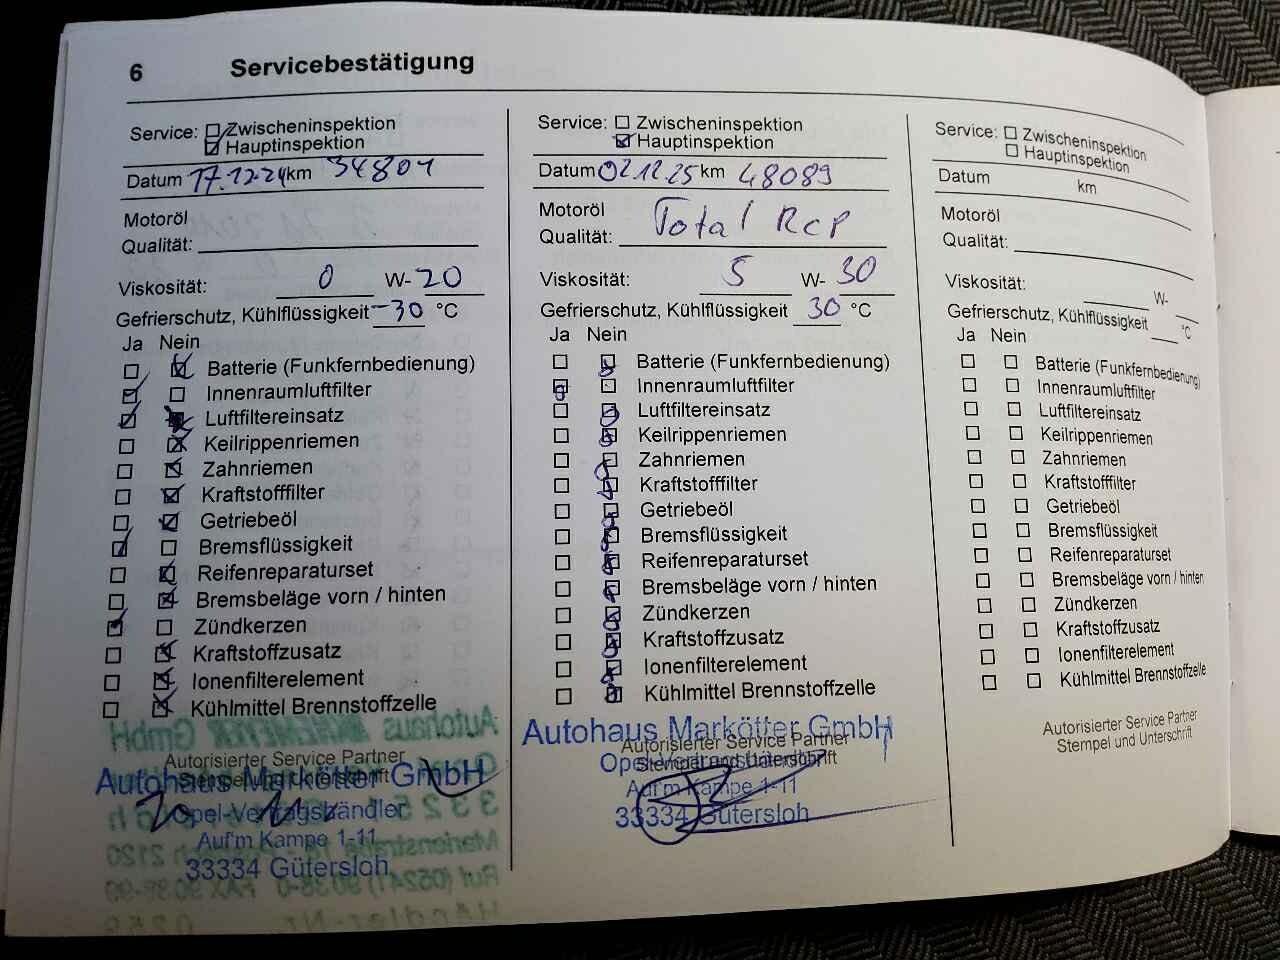 6 Servicebestätigung
Service: Zwischeninspektion
Hauptinspektion
Datum 17.12.24 km 34801
Motoröl
Qualität:
Viskosität: 0 W-20
Gefrierschutz, Kühlflüssigkeit -30 °C
Ja Nein
Batterie (Funkfernbedienung)
Innenraumluftfilter
Luftfiltereinsatz
Keilrippenriemen
Zahnriemen
Kraftstofffilter
Getriebeöl
Bremsflüssigkeit
Reifenreparaturset
Bremsbeläge vorn / hinten
Zündkerzen
Kraftstoffzusatz
Ionenfilterelement
Kühlmittel Brennstoffzelle
Autorisierter Service Partner
Stempel und Unterschrift
Autohaus Markötter GmbH
Opel-Vertragshändler
Auf'm Kampe 1-11
33334 Gütersloh
Service: Zwischeninspektion
Hauptinspektion
Datum 02.12.25 km 48089
Motoröl
Qualität: Total RCP
Viskosität: 5 W-30
Gefrierschutz, Kühlflüssigkeit 30 °C
Ja Nein
Batterie (Funkfernbedienung)
Innenraumluftfilter
Luftfiltereinsatz
Keilrippenriemen
Zahnriemen
Kraftstofffilter
Getriebeöl
Bremsflüssigkeit
Reifenreparaturset
Bremsbeläge vorn / hinten
Zündkerzen
Kraftstoffzusatz
Ionenfilterelement
Kühlmittel Brennstoffzelle
Autohaus Markötter GmbH
Autorisierter Service Partner
Opel-Vertragshändler
Stempel und Unterschrift
Auf'm Kampe 1-11
33334 Gütersloh
Service: Zwischeninspektion
Hauptinspektion
Datum km
Motoröl
Qualität:
Viskosität: W-
Gefrierschutz, Kühlflüssigkeit °C
Ja Nein
Batterie (Funkfernbedienung)
Innenraumluftfilter
Luftfiltereinsatz
Keilrippenriemen
Zahnriemen
Kraftstofffilter
Getriebeöl
Bremsflüssigkeit
Reifenreparaturset
Bremsbeläge vorn / hinten
Zündkerzen
Kraftstoffzusatz
Ionenfilterelement
Kühlmittel Brennstoffzelle
Autorisierter Service Partner
Stempel und Unterschrift